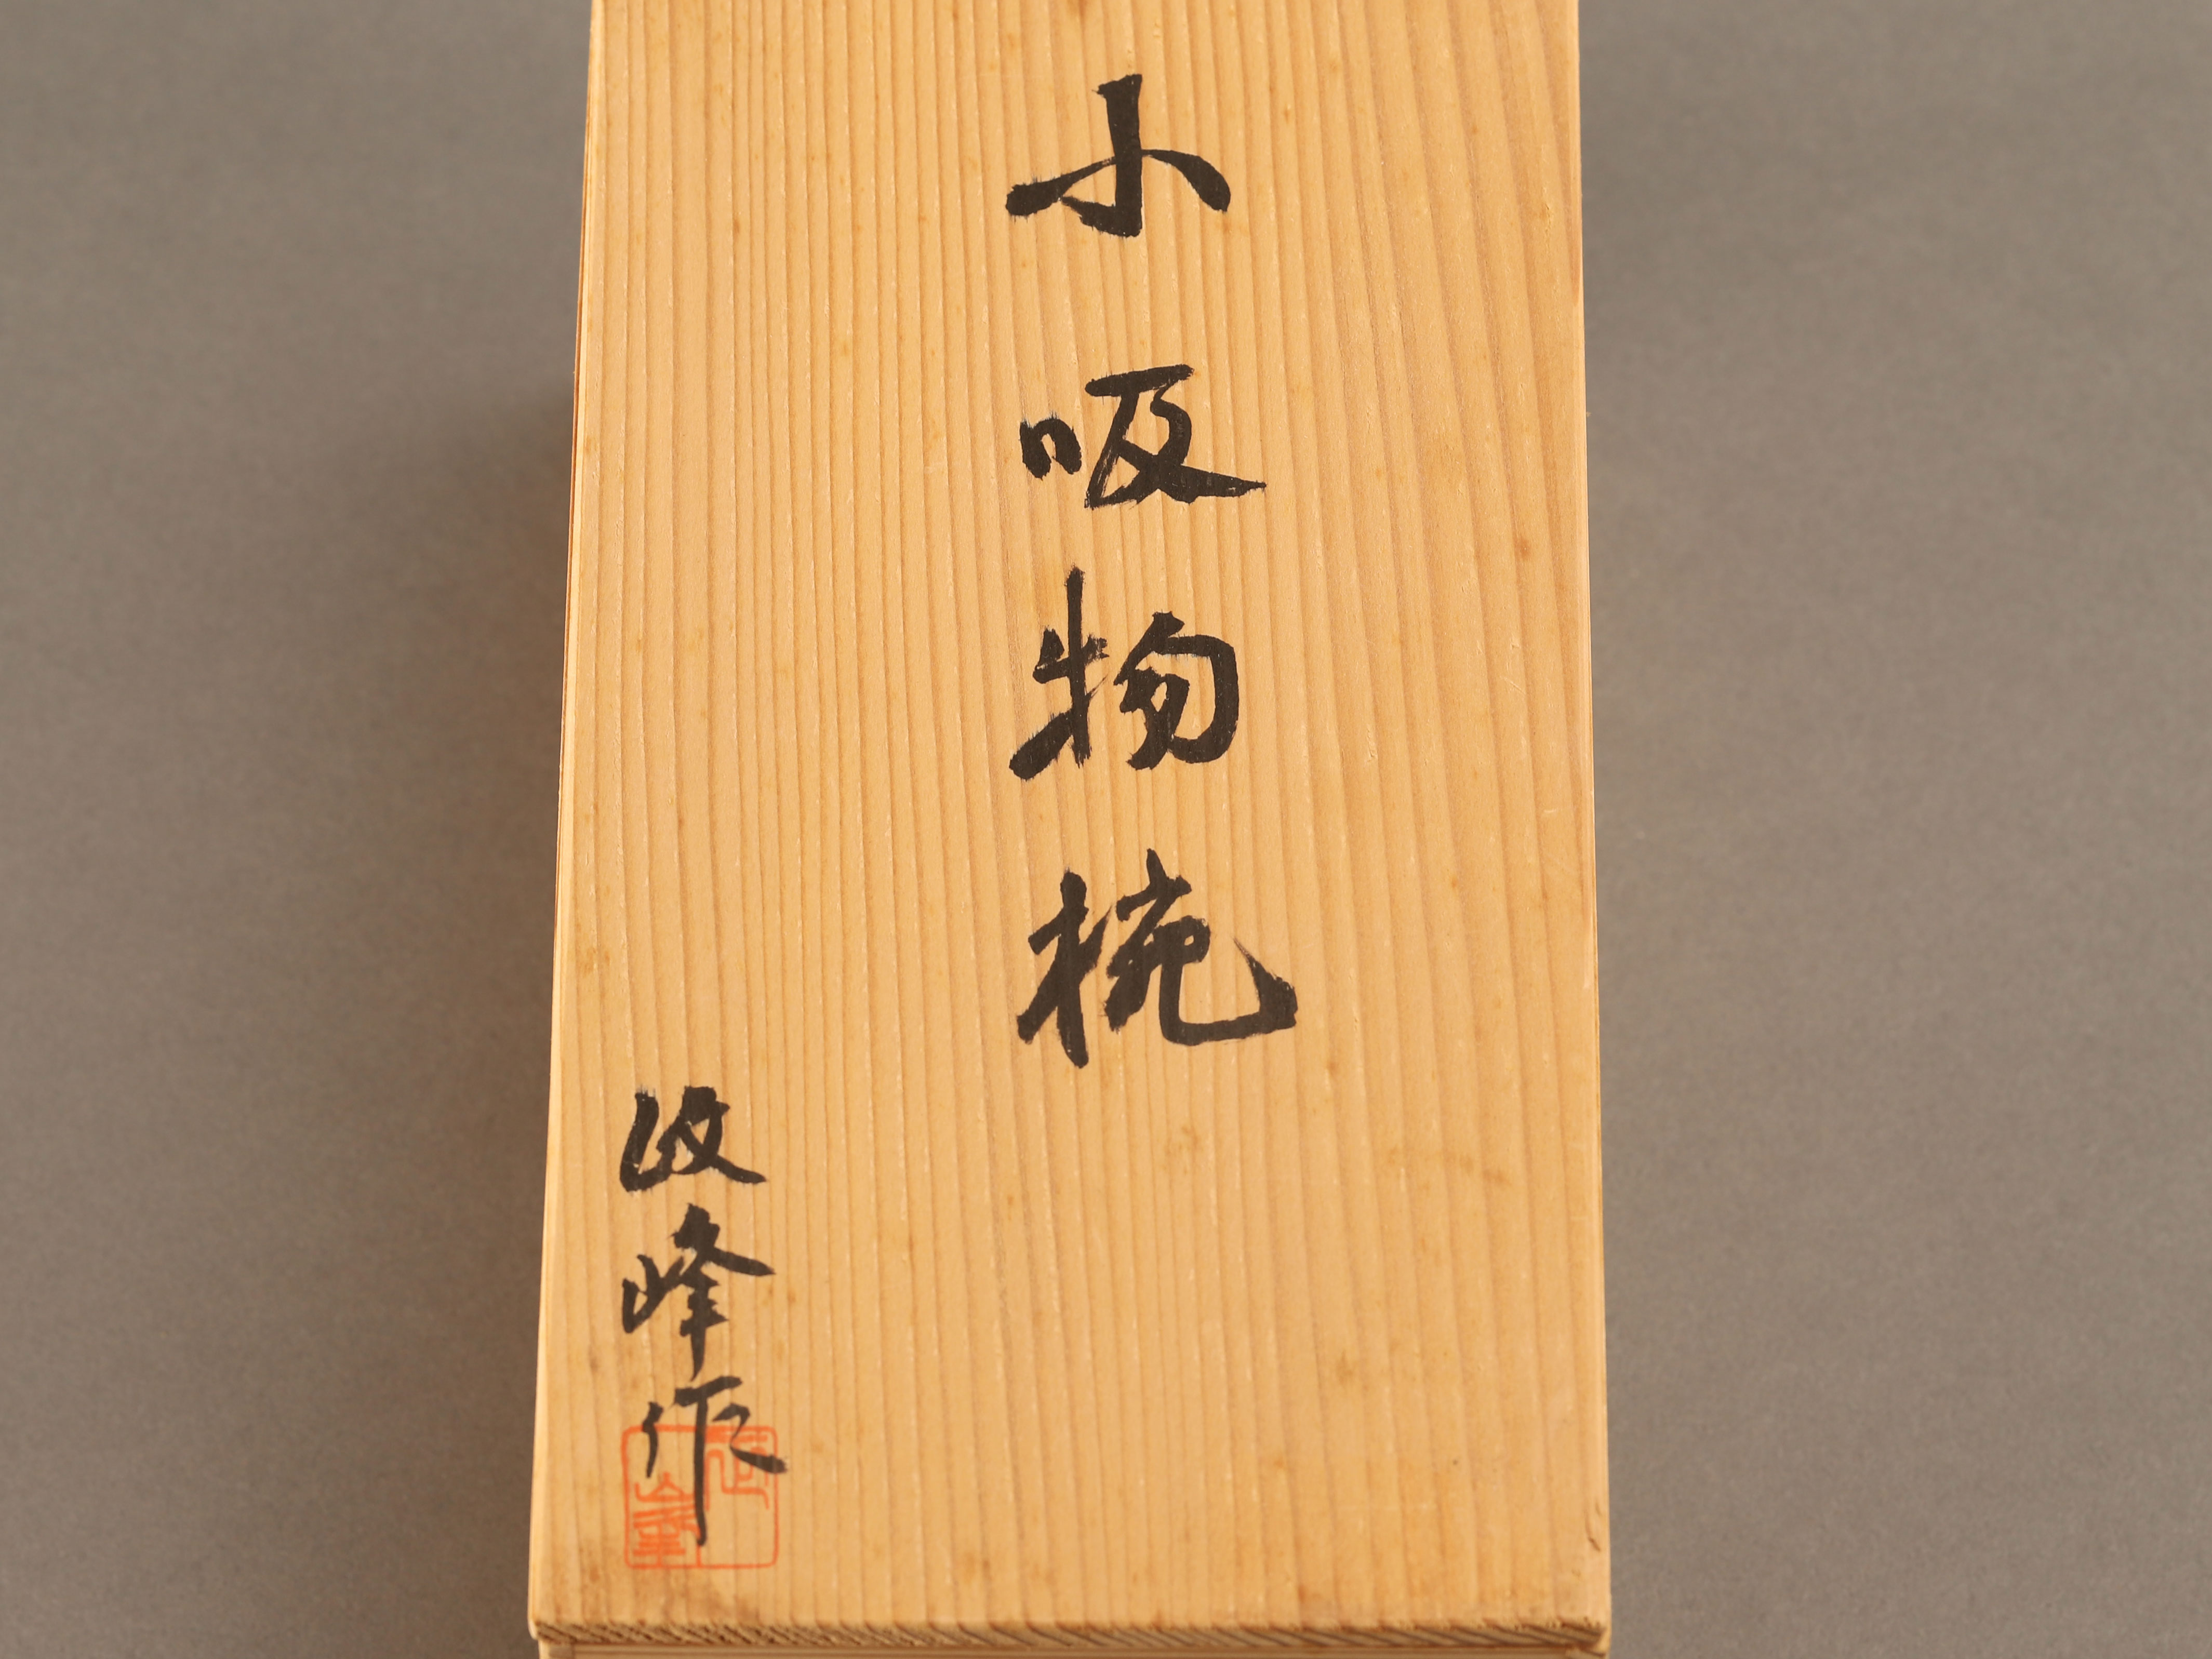 小吸物椀
政峰作